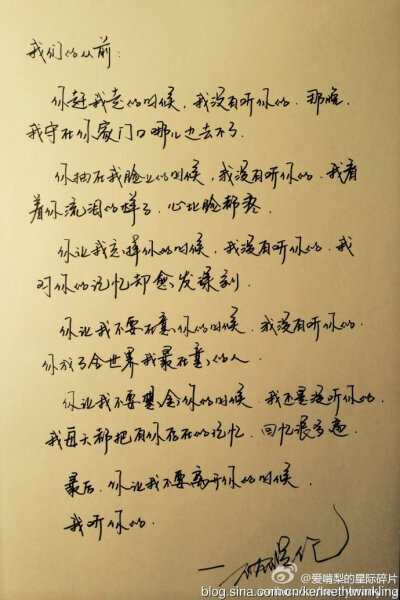 我们的从前：
你赶我走的时候，我没有听你的．那晚．
我守在你家门口哪儿也去不了．
你抽在我脸上的时候，我没有听你的．我看
着你流泪的样子．心比脸都疼．
你让我忘掉你的时候．我没有听你的．我
对你的记忆却愈发深刻
你让我不要在意你的时候．我没有听你的．
你成了全世界我最在意的人．
你让我不要想念你的时候．我还是没听你的．
我每天都把有你存在的记忆．回忆很多遍
最后．你让我不要离开你的时候．
我听你的．
@爱啃梨的星际碎片
blog.sina.com.cn/kennethytwinkling